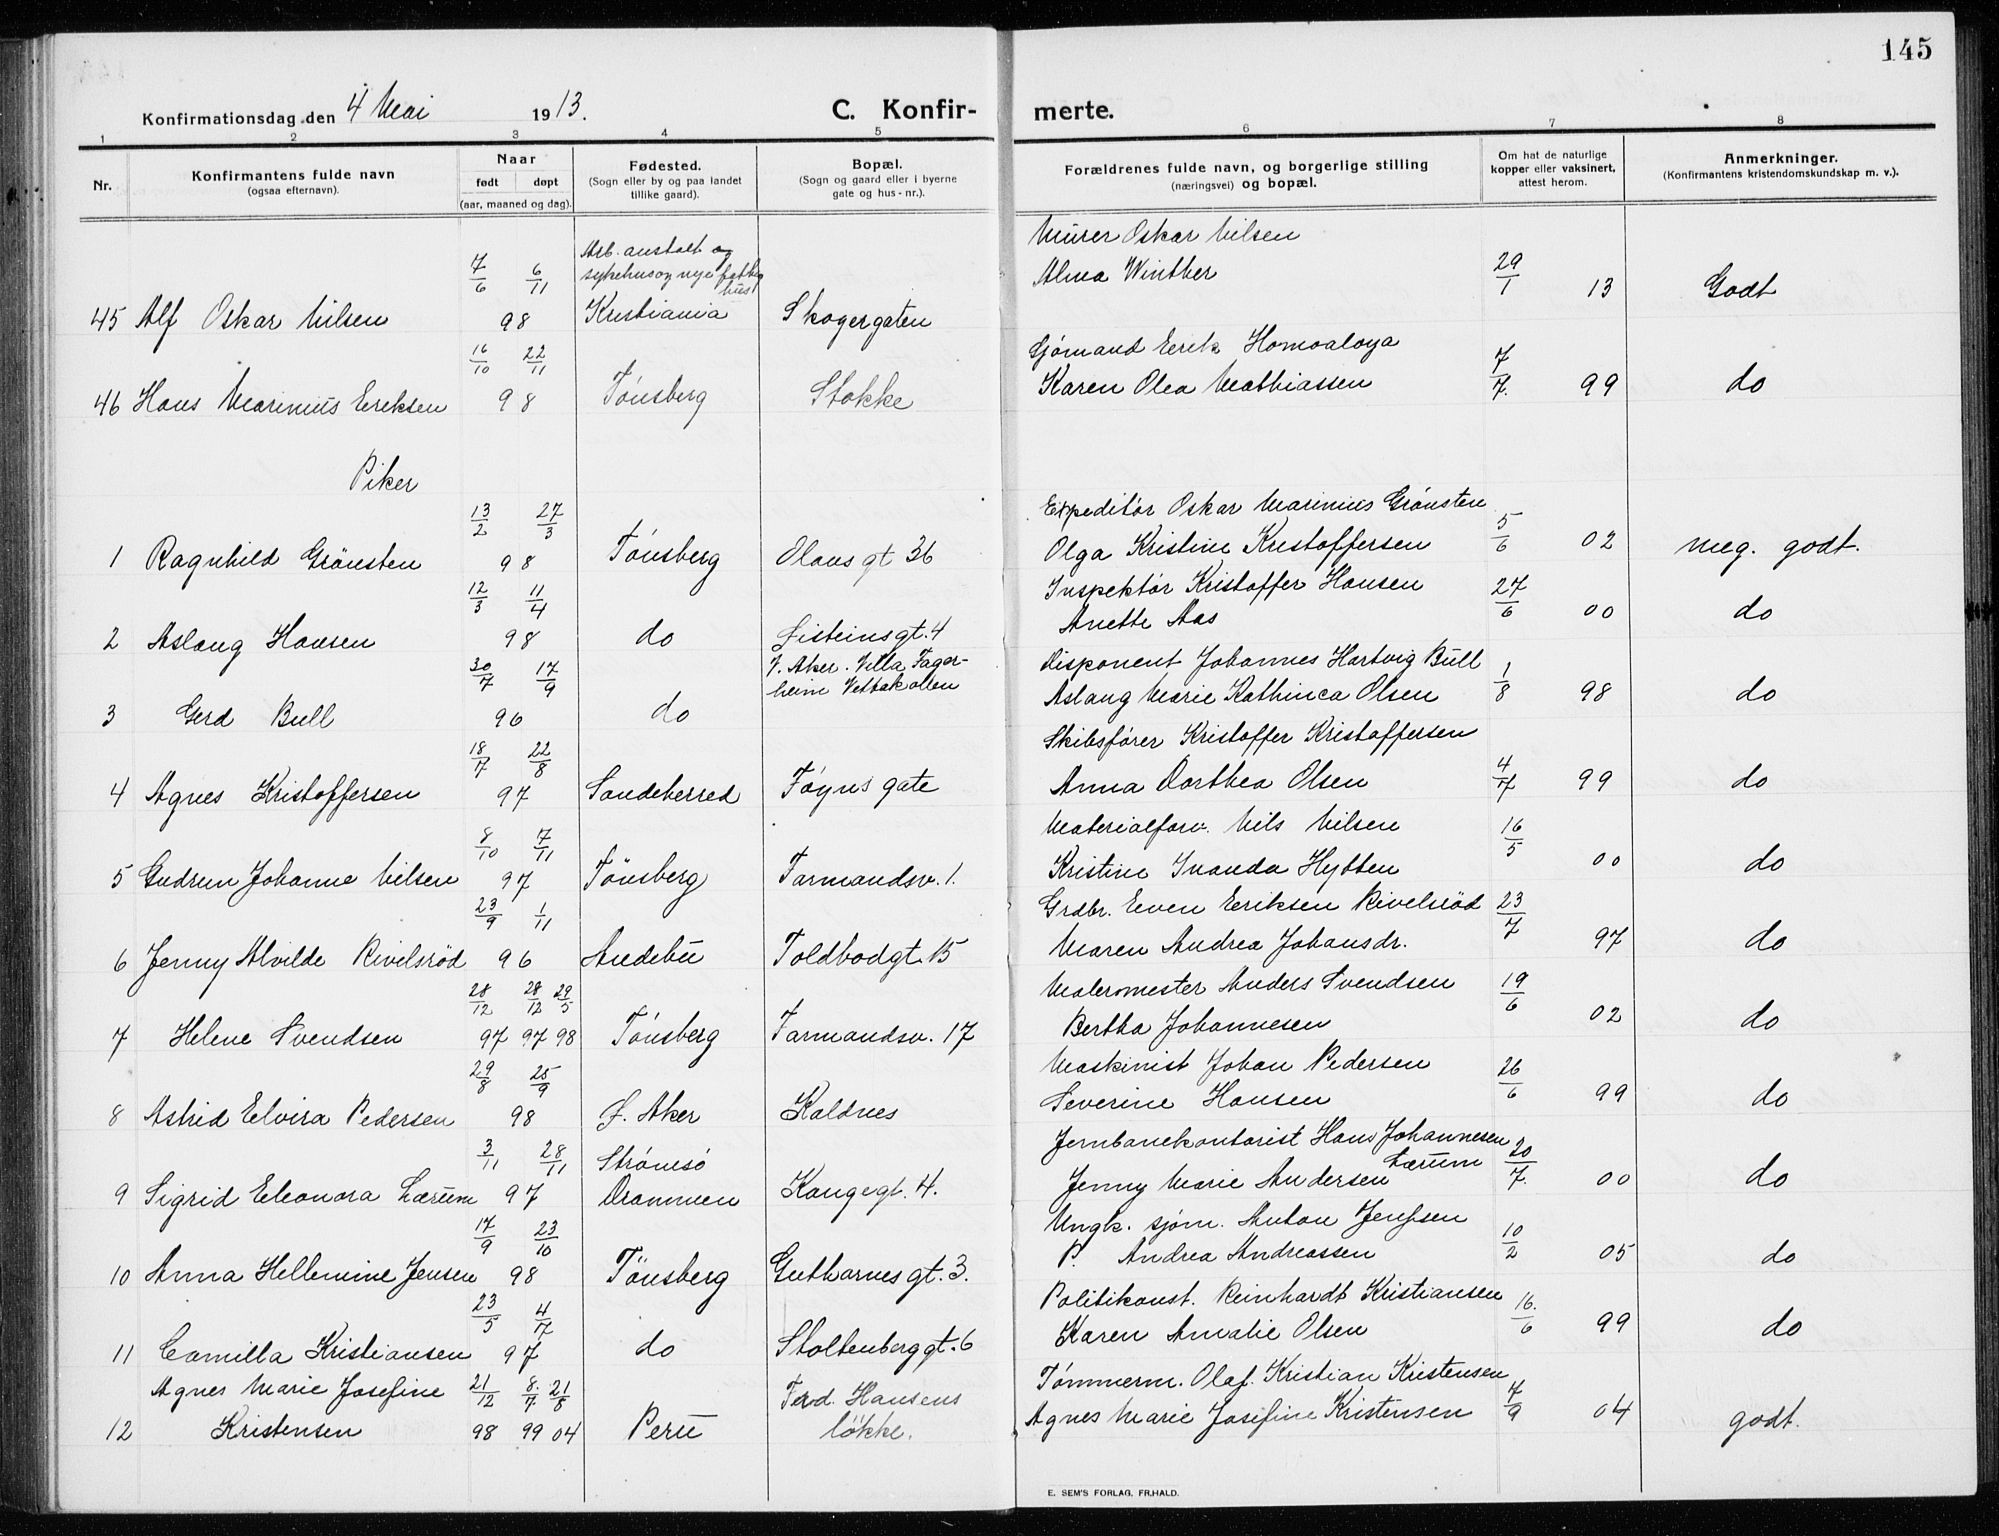 145
Konfirmationsdag den 4 Mai 1913.
C. Konfirmerte.
1 2 3 4 5 6 7 8
Nr.
Konfirmantens fulde navn
(ogsaa efternavn).
Naar
født døpt
(aar, maaned og dag).
Fødested.
(Sogn eller by og paa landet
tillike gaard).
Bopæl.
(Sogn og gaard eller i byerne
gate og hus-nr.).
Forældrenes fulde navn, og borgerlige stilling
(næringsvei) og bopæl.
Om hat de naturlige
kopper eller vaksinert,
attest herom.
Anmerkninger.
(Konfirmantens kristendomskundskap m. v.).
Arb. anstalt og
sykehus og nye fattig
hus
Murer Oskar Nilsen
7/6 6/11 Alma Winther 29/1 13 Godt
45 Alf Oskar Nilsen 98 Kristiania Skogergaten
16/10 22/11 Sjømand Eerik Homoaloya 7/7.
46 Hans Marinius Eriksen 98 Tønsberg Stokke Karen Olea Mathiassen 99 do
Piker
13/2 27/3 Expeditør Oskar Marinius Grönsten 5/6
1 Ragnhild Grönsten 98 Tønsberg Olavs gt 36 Olga Kristine Kristoffersen 02 meg. godt.
12/3 11/4 Inspektør Kristoffer Hansen 27/6
2 Aslaug Hansen 98 do Øisteinsgt. 4 Anette Aas 00 do
30/7 17/9 V. Aker. Villa Fager-
heim Vettakollen Disponent Johannes Hartvig Bull 1/8
3 Gerd Bull 96 do Aslaug Marie Kathinca Olsen 98 do
18/7 22/8 Skibsfører Kristoffer Kristoffersen
4 Agnes Kristoffersen 97 Sandeherred Føyns gate Anna Dorthea Olsen 4/7 99 do
8/10 7/11 Materialforv. Nils Nilsen 16/5
5 Gudrun Johanne Nilsen 97 Tönsberg Farmandsv. 1. Kristine Inanda Hytten 00 do
23/9 1/11 Grdbr. Even Eriksen Rivelsröd 23/7
6 Jenny Alvilde Rivelsröd 96 Andebu Toldbodgt. 15 Maren Andrea Johansdr. 97 do
28/12 28/12 29/5 Malermester Anders Svendsen 19/6
7 Helene Svendsen 97 97 98 Tønsberg Farmandsv. 17 Bertha Johannesen 02 do
29/8 25/9 Maskinist Johan Pedersen 26/6
8 Astrid Elvira Pedersen 98 Ø. Aker Kaldnes Severine Hansen 99 do
3/11 28/11 Strømsö Jernbanekontorist Hans Johannesen
Lærum 20/7.
9 Sigrid Eleonora Lærum 97 Drammen Kongegt. 4. Jenny Marie Andersen 00 do
17/9 23/10 Ungk. sjøm. Anton Jenssen 10/2
10 Anna Hellemine Jensen 98 Tönsberg Guthormsgt. 3. P. Andrea Andreassen 05 do
23/5 4/7 Politikonst. Reinhardt Kristiansen 16./6
11 Camilla Kristiansen 97 do Stoltenberggt. 6 Karen Amalie Olsen 99 do
Agnes Marie Josefine 21/12 8./7 21/8 Ferd. Hansens Tømmerm. Olaf. Kristian Kristensen 7/9
12 Kristensen 98 99 04 Peru løkke. Agnes Marie Josefine Kristensen 04 godt.
E. SEM'S FORLAG, FR.HALD.